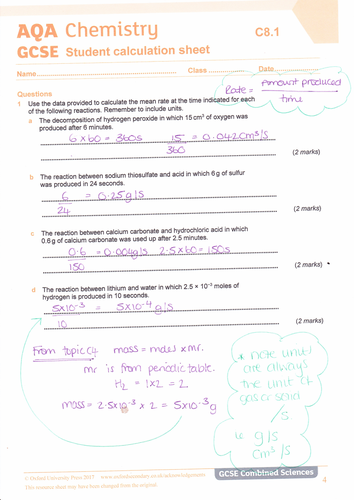 AQA Chemistry
C8.1
GCSE Student calculation sheet
Name
Class
Date
Rate = amount produced
time
Questions
1 Use the data provided to calculate the mean rate at the time indicated for each
of the following reactions. Remember to include units.
a The decomposition of hydrogen peroxide in which 15 cm³ of oxygen was
produced after 6 minutes.
6 x 60 = 360s 15 = 0.042cm³/s
360
(2 marks)
b The reaction between sodium thiosulfate and acid in which 6 g of sulfur
was produced in 24 seconds.
6 = 0.25g/s
24
(2 marks)
c The reaction between calcium carbonate and hydrochloric acid in which
0.6 g of calcium carbonate was used up after 2.5 minutes.
0.6 = 0.004g/s 2.5x60=150s
150
(2 marks)
d The reaction between lithium and water in which 2.5 × 10⁻³ moles of
hydrogen is produced in 10 seconds.
5x10⁻³ = 5x10⁻⁴ g/s
10
(2 marks)
From topic C4 mass = moles x mr.
mr is from periodic table.
H₂ = 1x2 = 2
mass = 2.5x10⁻³ x 2 = 5x10⁻³g
* note units
are always
the unit of
gas or solid
/s.
ie g/s
cm³/s
© Oxford University Press 2017
This resource sheet may have been changed from the original.
GCSE Combined Sciences
4